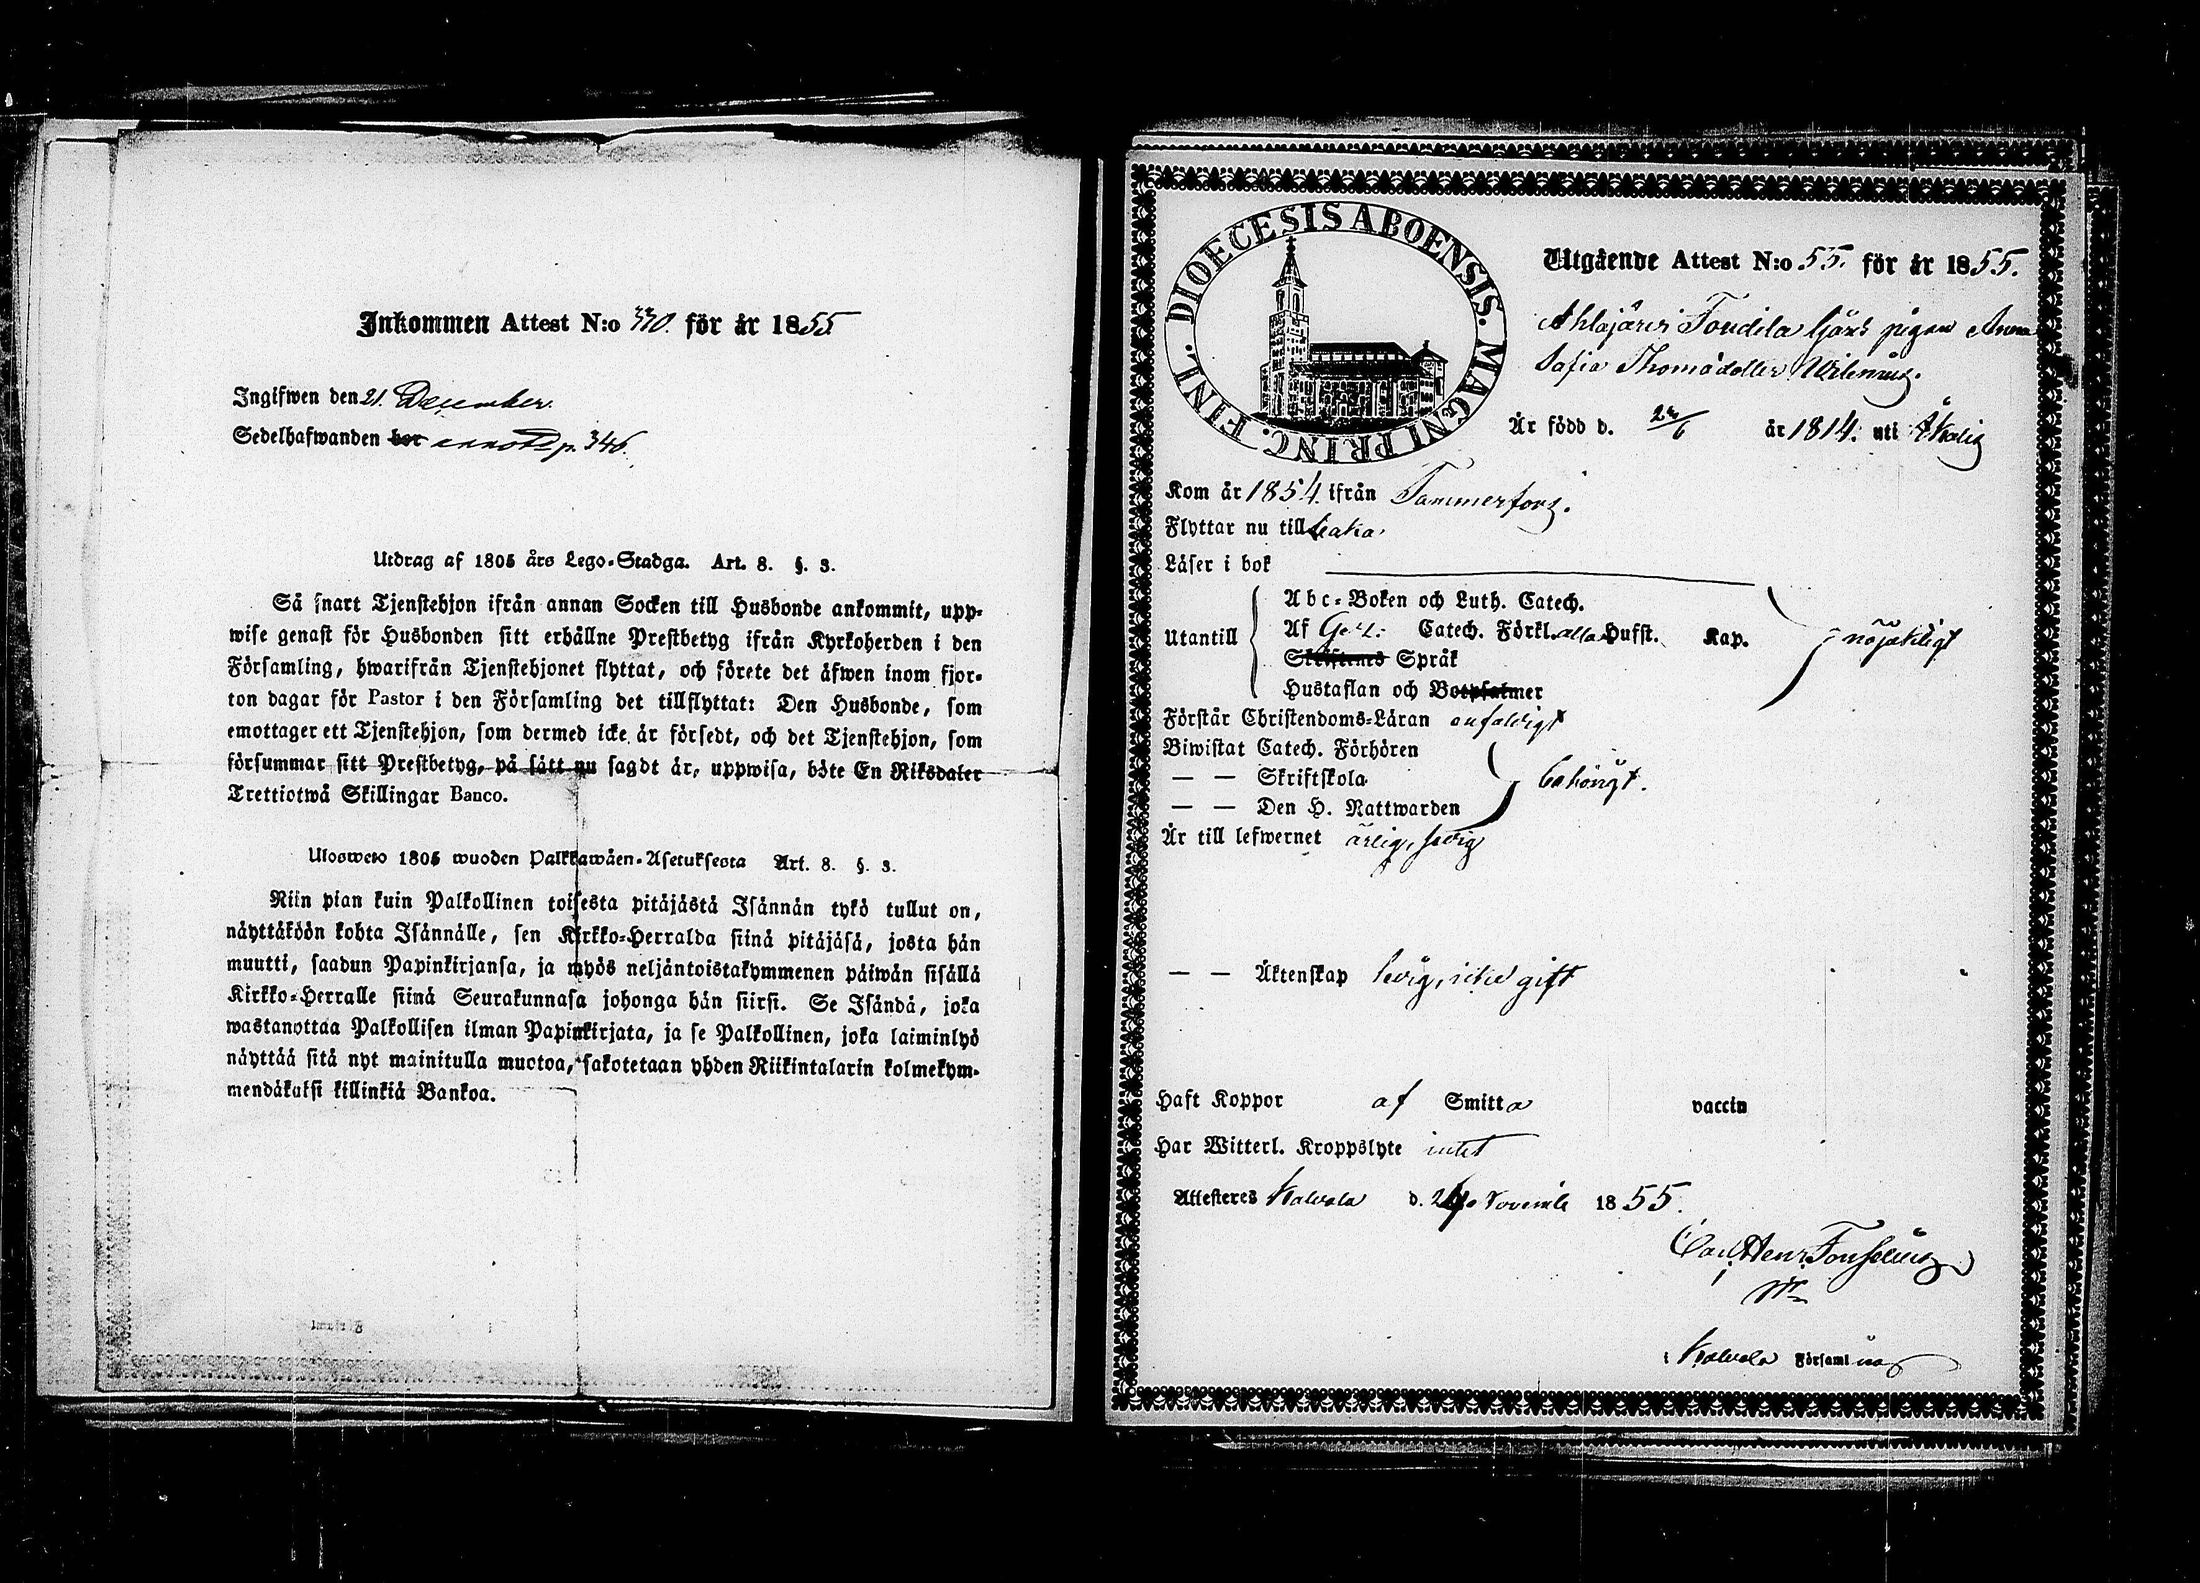 Inkommen Attest N:o 330. för år 1855
Ingifwen den 21. December.
Sedelhafwanden bor annot. p. 346.
Utdrag af 1805 års Lego-Stadga. Art. 8. §. 3.
Så snart Tjenstehjon ifrån annan Socken till Husbonde ankommit, upp-
wise genast för Husbonden sitt erhållne Prestbetyg ifrån Kyrkoherden i den
Församling, hwarifrån Tjenstehjonet flyttat, och förete det äfwen inom fjor-
ton dagar för Pastor i den Församling det tillflyttat: Den Husbonde, som
emottager ett Tjenstehjon, som dermed icke är försedt, och det Tjenstehjon, som
försummar sitt Prestbetyg, på sätt nu sagdt är, uppwisa, böte En Riksdaler
Trettiotwå Skillingar Banco.
Ulosweto 1805 wuoden Palkkawäen-Asetuksesta Art. 8. §. 3.
Niin pian kuin Palkollinen toisesta pitäjästä Isännän tykö tullut on,
näyttäköön kohta Isännälle, sen Kirkko-Herralda siinä pitäjäsä, josta hän
muutti, saadun Papinkirjansa, ja myös neljäntoistakymmenen päiwän sisällä
Kirkko-Herralle siinä Seurakunnasa johonga hän siirsi. Se Isändä, joka
wastanottaa Palkollisen ilman Papinkirjata, ja se Palkollinen, joka laiminlyö
näyttää sitä nyt mainitulla muotoa, sakotetaan yhden Riikintalarin kolmekym-
mendäkaksi killinkiä Bankoa.
DIOECESIS ABOENSIS. MAGNI PRINC. FINL.
Utgående Attest N:o 55. för år 1855.
Ahlajärvi Toudila pigan Anna
Safia Thomasdotter
Är född d. 23/6 år 1814. uti
Kom år 1854. ifrån Tammerfors.
Flyttar nu till
Läser i bok
Utantill
Abc-Boken och Luth. Catech.
Af Catech. Förkl. alla Hufst. Kap. nöjaktigt
Skriftenes Språk
Hustaflan och Botpsalmer
Förstår Christendoms-Läran enfaldigt
Biwistat Catech. Förhören
— — Skriftskola behörigt.
— — Den H. Nattwarden
Är till lefwernet ärlig, ledig
— — Äktenskap ledig, icke gift
Haft Koppor af Smitta vaccin
Har Witterl. Kroppslyte intet
Attesteres Kalvola d. 24 Novemb 1855.
Carl Henr.
i Kalvola Församling